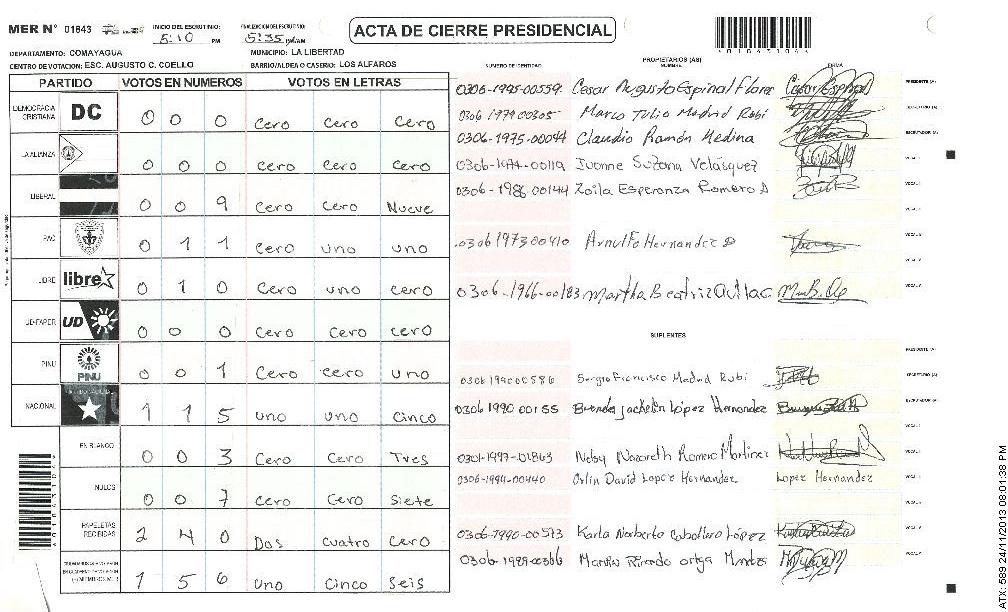 MER N° 01843
INICIO DEL ESCRUTINIO:
5:10 PM
FINALIZACION DEL ESCRUTINIO:
5:35 PM/AM
ACTA DE CIERRE PRESIDENCIAL
DEPARTAMENTO: COMAYAGUA
MUNICIPIO: LA LIBERTAD
CENTRO DE VOTACION: ESC. AUGUSTO C. COELLO
BARRIO/ALDEA O CASERIO: LOS ALFAROS
PARTIDO VOTOS EN NUMEROS VOTOS EN LETRAS
DEMOCRACIA CRISTIANA DC 0 0 0 Cero Cero Cero
LA ALIANZA 0 0 0 Cero Cero Cero
LIBERAL 0 0 9 Cero Cero Nueve
PAC 0 1 1 Cero uno uno
LIBRE libre 0 1 0 Cero uno Cero
UD-FAPER UD 0 0 0 Cero Cero Cero
PINU PINU 0 0 1 Cero Cero uno
NACIONAL 1 1 5 uno uno Cinco
EN BLANCO 0 0 3 Cero Cero Tres
NULOS 0 0 7 Cero Cero Siete
PAPELETAS RECIBIDAS 2 4 0 Dos Cuatro Cero
1 5 6 uno Cinco Seis
NUMERO DE IDENTIDAD
PROPIETARIOS (AS)
NOMBRE
FIRMA
0306-1995-00559 Cesar Augusto Espinal Flores PRESIDENTE (A)
0306 1979 00305 Marco Tulio Madrid Rubi SECRETARIO (A)
0306-1975-00044 Claudio Ramón Medina ESCRUTADOR (A)
0306-1974-00119 Ivonne Suzana Velásquez VOCAL I
0306-1986 00144 Zoila Esperanza Romero D VOCAL
0306 1973 00410 Arnulfo Hernandez
0306-1966-00183 Martha Beatriz
SUPLENTES
PRESIDENTE (A)
0306 1990 00586 Sergio Francisco Madrid Rubi SECRETARIO (A)
0306 1990 00155 Brenda Jackelin López Hernandez ESCRUTADOR (A)
0301-1997-01863 Nelsy Nazareth Romero Martinez VOCAL I
0306-1994-00440 Orlin David Lopez Hernandez Lopez Hernandez
0306-1990-00513 Karla Norberta Caballero López
0306-1989-00366 Marvin Ricardo ortega
ATX: 589 24/11/2013 08:01:38 PM